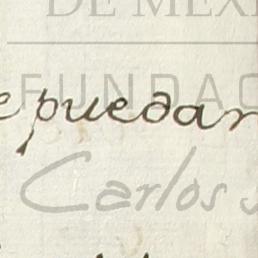 DE MÉXI
FUNDAC
puedan
Carlos